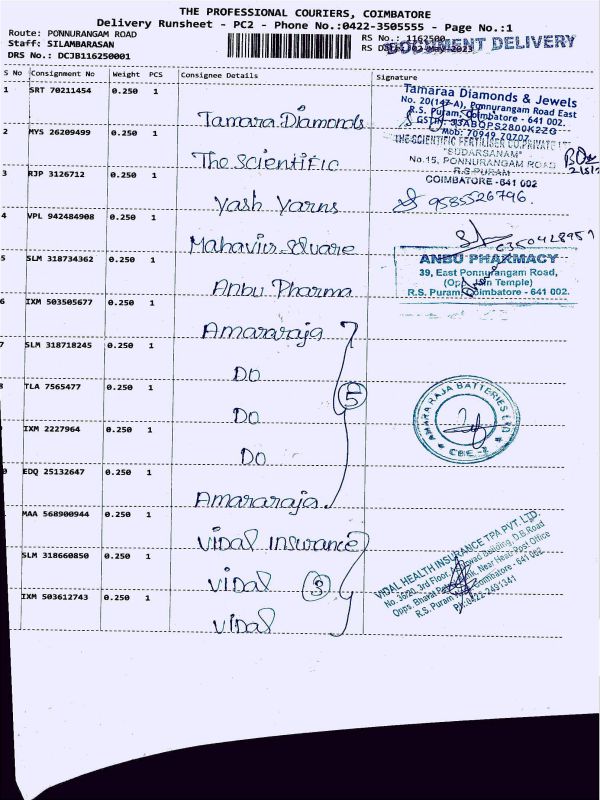 THE PROFESSIONAL COURIERS, COIMBATORE
Delivery Runsheet - PC2 - Phone No.:0422-3505555 - Page No.:1
Route: PONNURANGAM ROAD
Staff: SILAMBARASAN
DRS No.: DCJB116250001
RS No.: 1162500
RS 02 May 2023
DOCUMENT DELIVERY
S No Consignment No Weight PCS Consignee Details Signature
1 SRT 70211454 0.250 1 Tamara Diamonds
Tamaraa Diamonds & Jewels
No. 20(147-A), Ponnurangam Road East
R.S. Puram, Coimbatore - 641 002.
GSTIN: 33ABQPS2800K2ZG
Mob: 70949 70707
2 MYS 26209499 0.250 1 The Scientific
THE SCIENTIFIC FERTILISER CO.PRIVATE LT
"SUDARSANAM"
No.15, PONNURANGAM ROAD
R.S.PURAM
COIMBATORE -641 002
3 RJP 3126712 0.250 1 Yash Yarns
9585526796.
4 VPL 942484908 0.250 1 Mahaviir Square
6350428957
5 SLM 318734362 0.250 1 Anbu Pharma
ANBU PHARMACY
39, East Ponnurangam Road,
(Opp. Temple)
R.S. Puram, Coimbatore - 641 002.
6 IXM 503505677 0.250 1 Amararaja
7 SLM 318718245 0.250 1 DO
5
8 TLA 7565477 0.250 1 DO
AMARA RAJA BATTERIES LTD
CBE - 2
IXM 2227964 0.250 1 DO
0 EDQ 25132647 0.250 1 Amararaja
MAA 568900944 0.250 1 Vidal Insurance
VIDAL HEALTH INSURANCE TPA PVT. LTD.
No. 36/20, 3rd Floor Building, D.B.Road
Opps. Bharat Bank, Near Head Post Office
R.S. Puram Coimbatore - 641 002
PH:0422-2491341
SLM 318660850 0.250 1 Vidal
3
IXM 503612743 0.250 1 Vidal